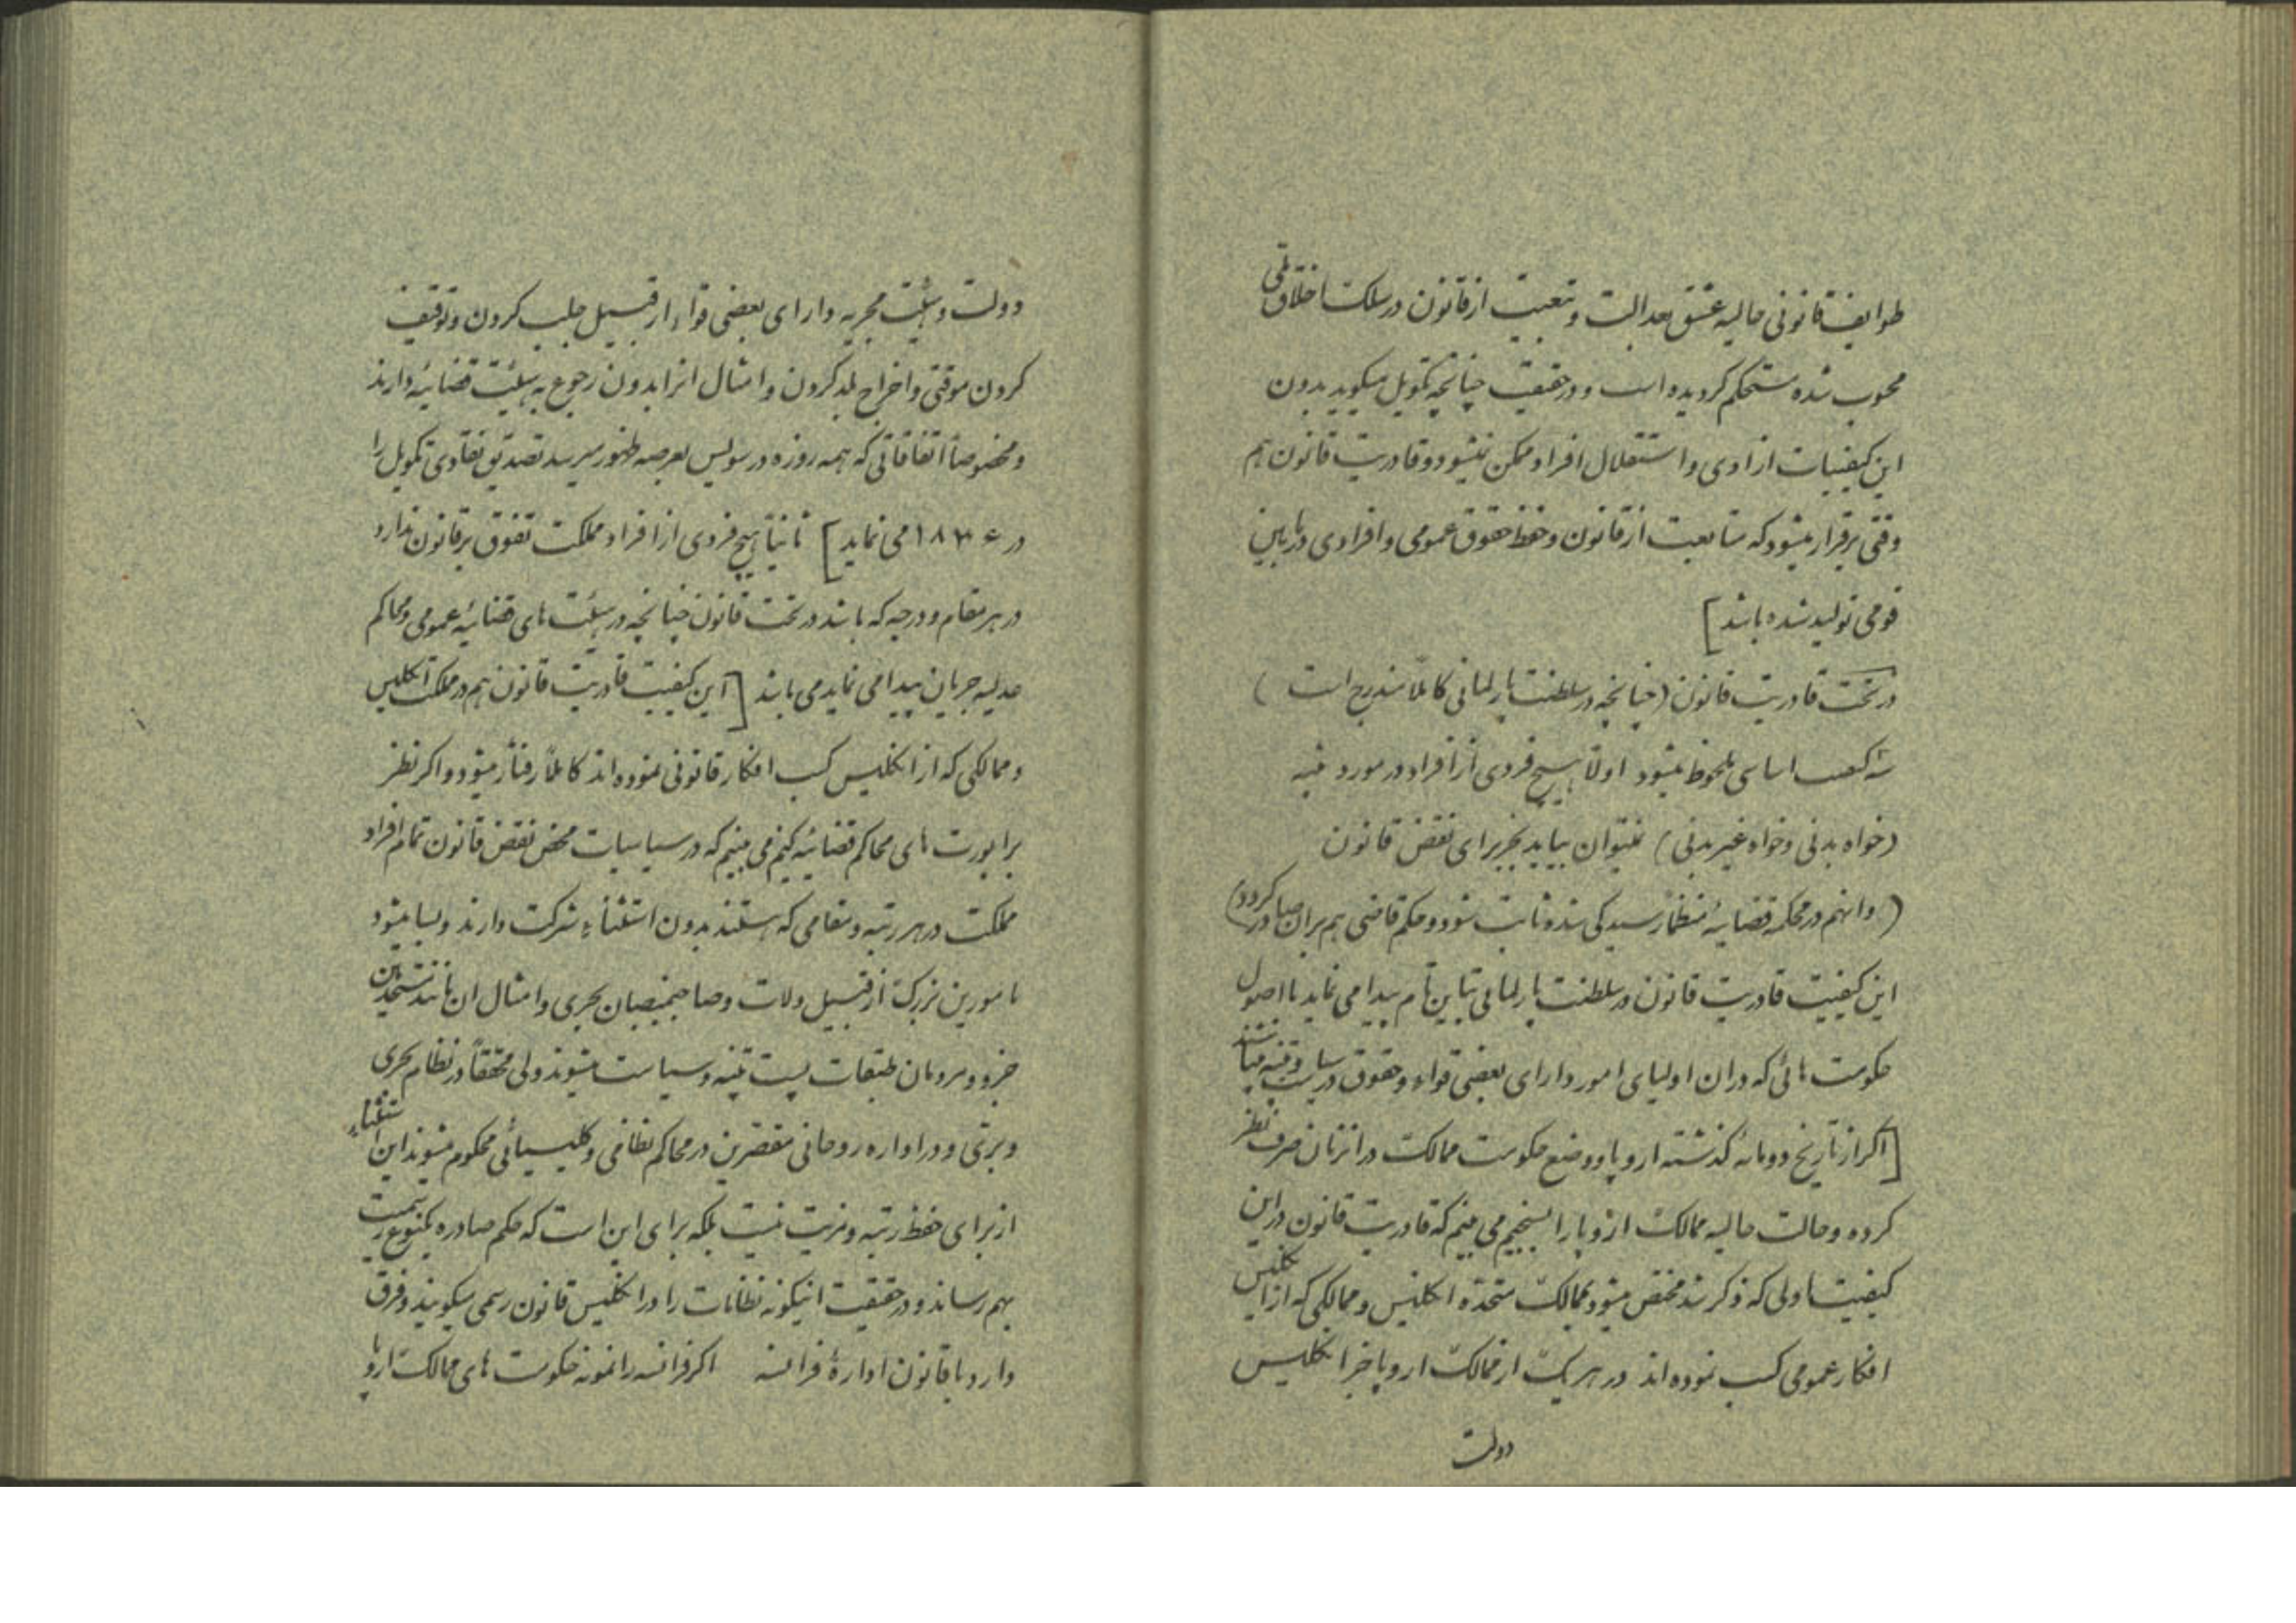 طوایف قانونی حالیه عشق بعدالت و تبعیت از قانون در سلک اخلاق ملی
محسوب شده مستحکم گردیده است و در حقیقت چنانچه تکویل میگوید بدون
این کیفیات ازادی و استقلال افراد ممکن نمیشود و قادریت قانون هم
وقتی برقرار میشود که متابعت از قانون و حفظ حقوق عمومی و افرادی در مابین
قومی تولید شده باشد]
در تحت قادریت قانون (چنانچه در سلطنت پارلمانی کاملاً مندرج است)
سه اساسی ملحوظ میشود اولاً هیچ فردی از افراد در مورد تنبیه
(خواه بدنی و خواه غیر بدنی) نمیتوان بیاید بجز برای نقض قانون
(و انهم در محکمه قضائیه منظماً رسیدگی شده ثابت شود و حکم قاضی هم بران صادر گردد)
این کیفیت قادریت قانون در سلطنت پارلمانی تباین تام پیدا می نماید با اصول
حکومت هائی که دران اولیای امور دارای بعضی قواء و حقوق در سیاست و تنبیه میباشند
[اگر از تاریخ دو مائه گذشته اروپا و وضع حکومت ممالک در انزمان صرف نظر
کرده و حالت حالیه ممالک اروپا را بسنجیم می بینم که قادریت قانون در این
کیفیت اولی که ذکر شد مختص میشود بممالک متحده انگلیس و ممالکی که از انگلیس
افکار عمومی کسب نموده اند در هر یک از ممالک اروپا جز انگلیس
دولت
دولت و هیئت مجریه دارای بعضی قواء از قبیل جلب کردن و توقیف
کردن موقتی و اخراج بلد کردن و امثال انرا بدون رجوع به هیئت قضائیه دارند
و مخصوصاً اتفاقاتی که همه روزه در سویس بعرصه ظهور میرسد تصدیق تکویل را
در ۱۸۳۶ می نماید] ثانیاً هیچ فردی از افراد مملکت تفوق بر قانون ندارد
در هر مقام و درجه که باشد در تحت قانون چنانچه در هیئت های قضائیه عمومی و محاکم
عدلیه جریان پیدا می نماید می باشد [این کیفیت قادریت قانون هم در مملکت انگلیس
و ممالکی که از انگلیس کسب افکار قانونی نموده اند کاملاً رفتار میشود و اگر نظر
براپورت های محاکم قضائیه کنیم می بینم که در سیاسیات محض نقض قانون تمام افراد
مملکت در هر رتبه و مقامی که هستند بدون استثناء شرکت دارند و بسا میشود
مامورین بزرک از قبیل ولات و صاحبمنصبان بحری و امثال ان مانند مستخدمین
جزو و مردمان طبقات پست تنبیه و سیاست میشوند ولی محققاً در نظام بحری
و بری و در اداره روحانی مقصرین در محاکم نظامی و کلیسیائی محکوم میشوند این استثناء
از برای حفظ رتبه و مزیت نیست بلکه برای این است که حکم صادره یکنوع رسمیت
بهم رساند و در حقیقت اینگونه نظامات را در انگلیس قانون رسمی میگویند و فرق
دارد با قانون ادارهٔ فرانسه اگر فرانسه را نمونه حکومت های ممالک اروپا